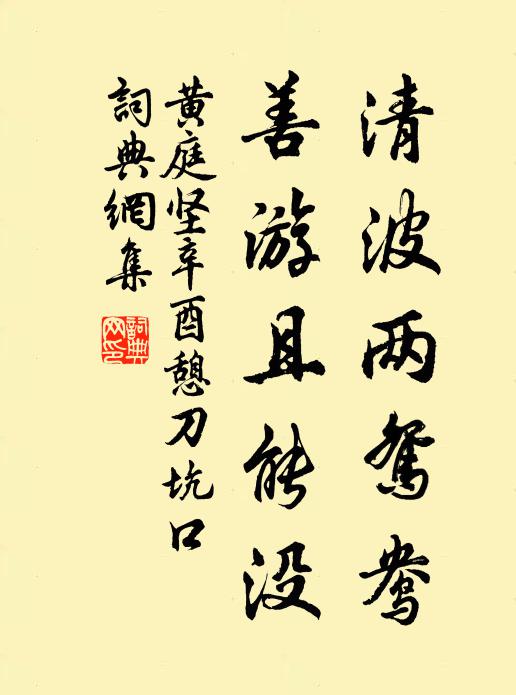 清波两鴛鴦
善游且能没
黄庭坚辛酉憩刀坑口
詞典網集
詞典網印